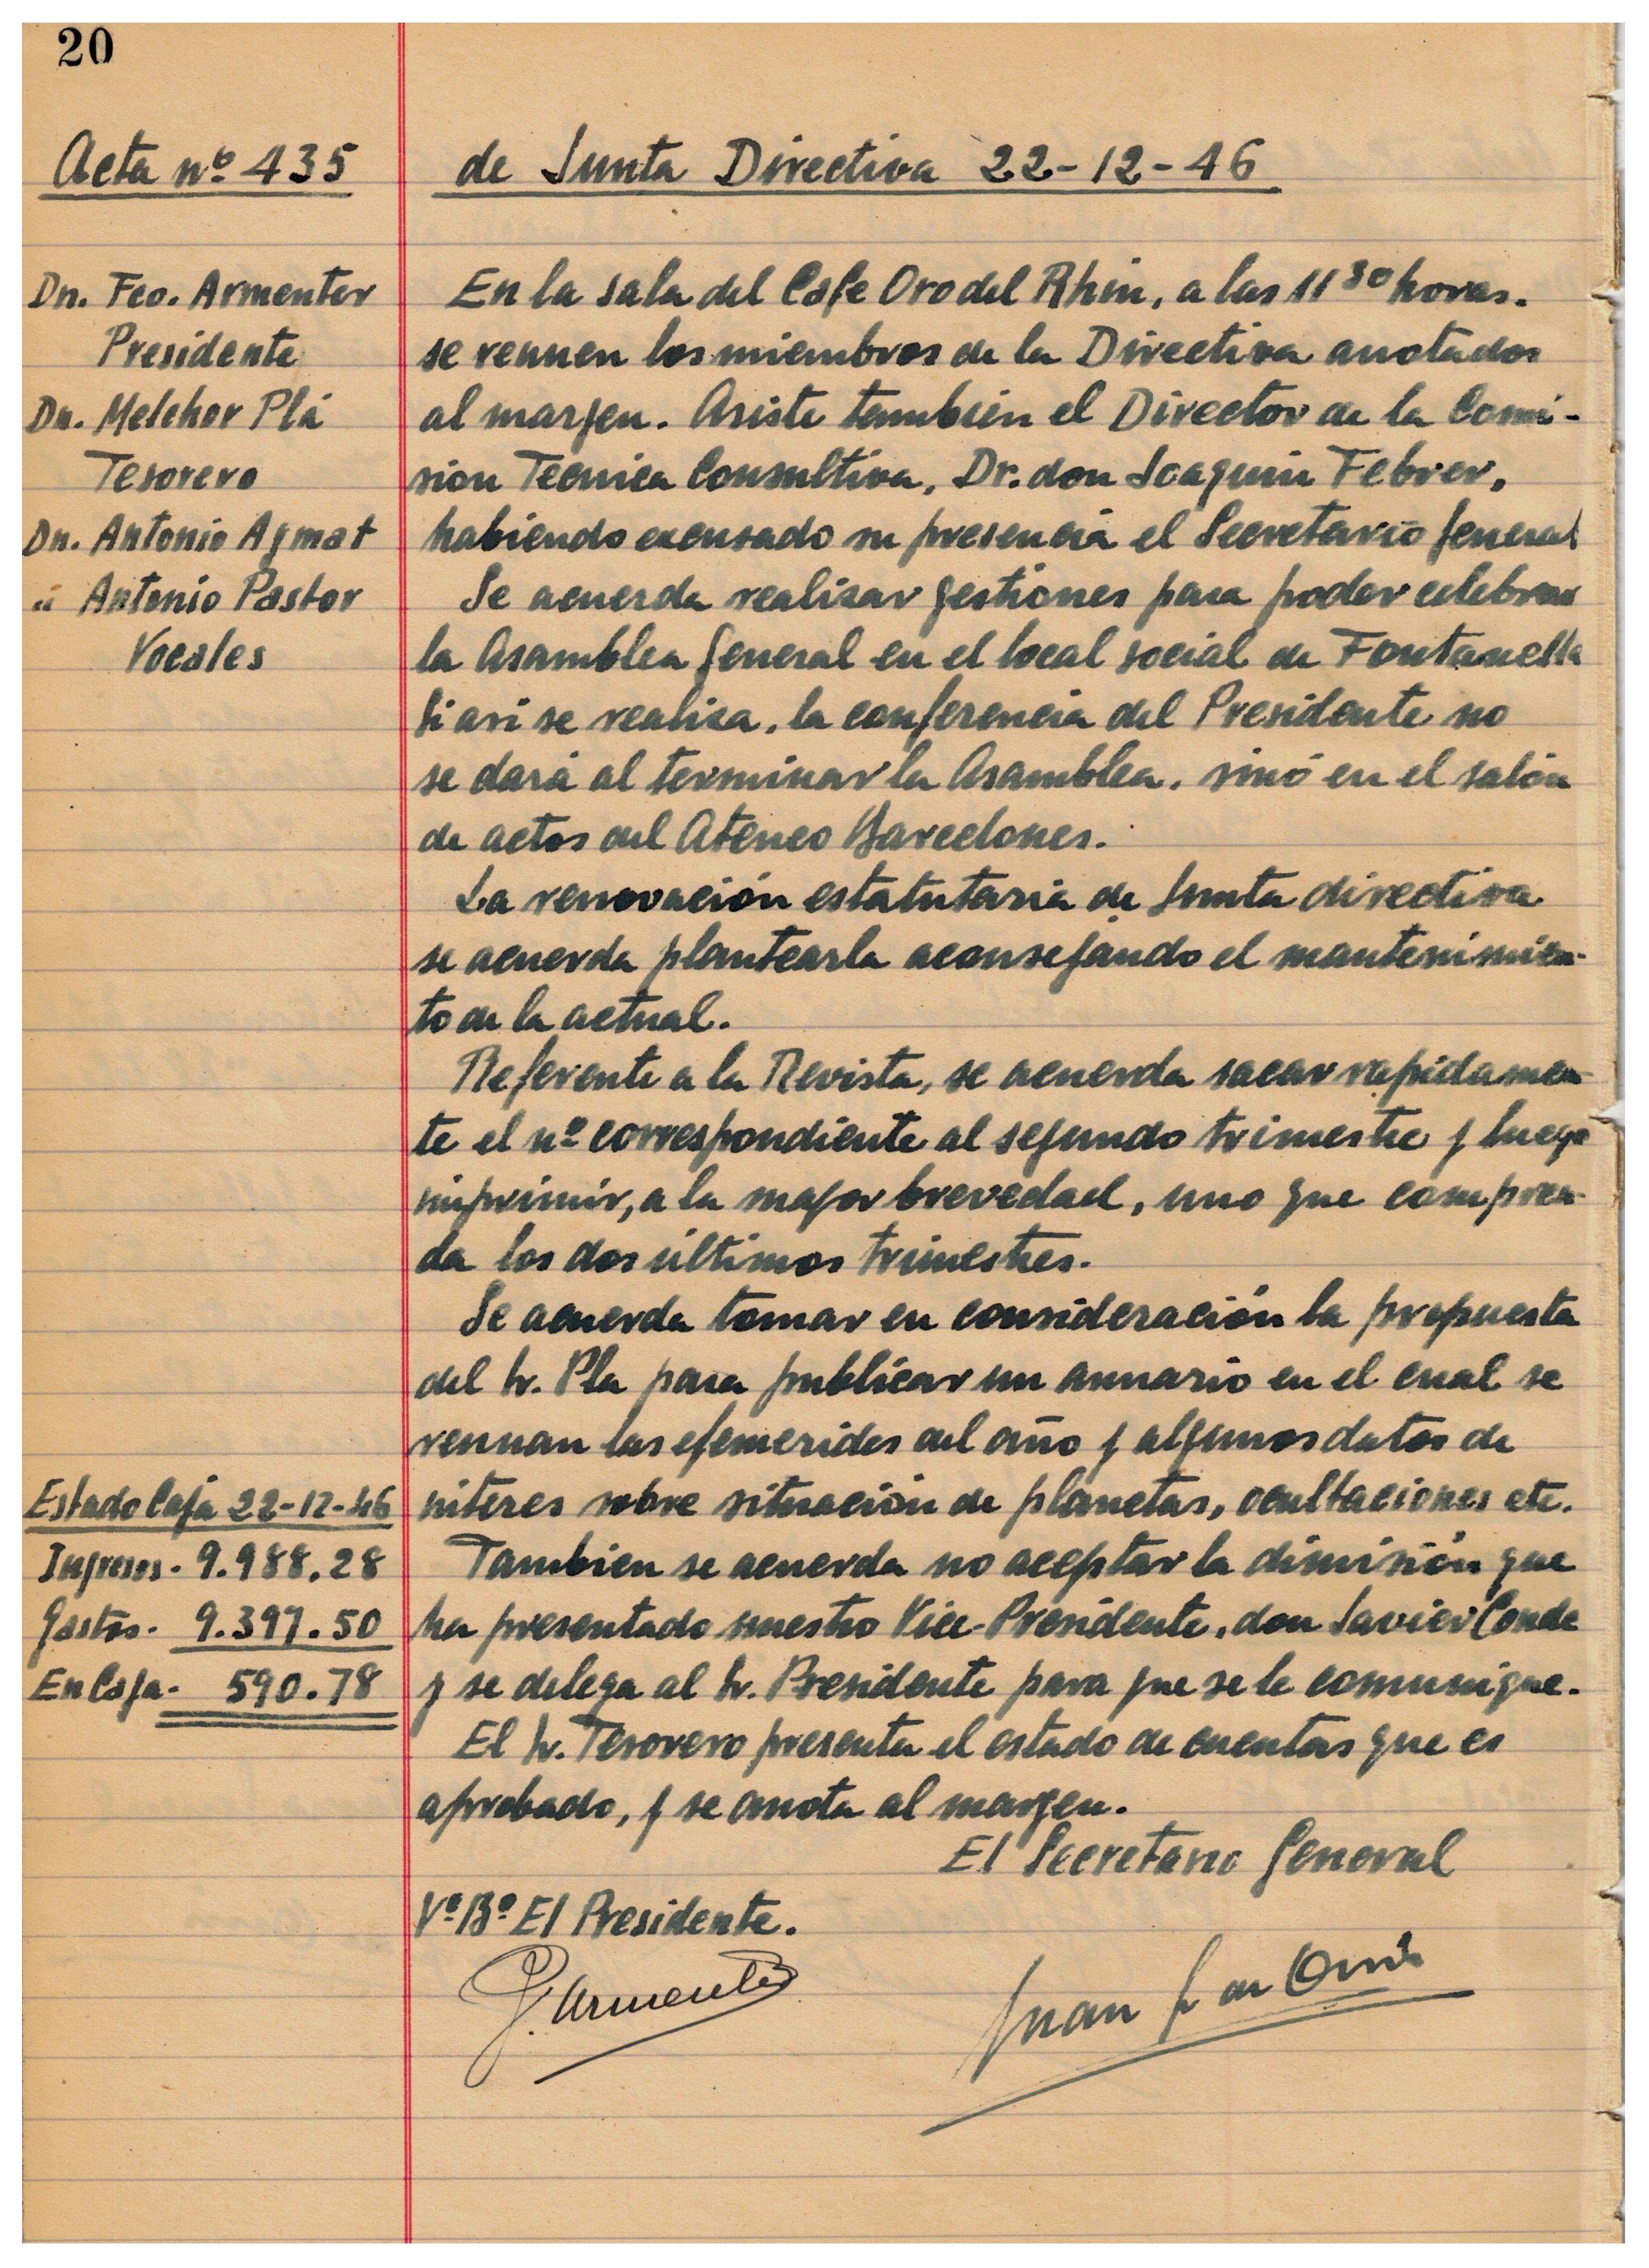 20
Acta nº 435
de Junta Directiva 22-12-46
Dn. Fco. Armenter
Presidente
Dn. Melchor Plá
Tesorero
Dn. Antonio Aymat
" Antonio Pastor
Vocales
En la sala del Cafe Oro del Rhin, a las 11 30 horas.
se reunen los miembros de la Directiva anotados
al margen. Asiste también el Director de la Comi-
sion Tecnica Consultiva, Dr. don Joaquin Febrer,
habiendo excusado su presencia el Secretario general
Se acuerda realizar gestiones para poder celebrar
la Asamblea general en el local social de Fontanella
Si asi se realiza, la conferencia del Presidente no
se dará al terminar la Asamblea, sinó en el salón
de actos del Ateneo Barcelones.
La renovación estatutaria de Junta directiva
se acuerda plantearla aconsejando el mantenimien-
to de la actual.
Referente a la Revista, se acuerda sacar rapidamen-
te el nº correspondiente al segundo trimestre y luego
imprimir, a la mayor brevedad, uno que compren-
da los dos últimos trimestres.
Se acuerda tomar en consideración la propuesta
del Sr. Pla para publicar un anuario en el cual se
reunan las efemerides del año y algunos datos de
interes sobre situación de planetas, ocultaciones etc.
Tambien se acuerda no aceptar la dimisión que
ha presentado nuestro Vice-Presidente, don Javier Conde
y se delega al Sr. Presidente para que se le comunique.
El Sr. Tesorero presenta el estado de cuentas que es
aprobado, y se anota al margen.
Estado Caja 22-12-46
Ingresos - 9.988.28
Gastos - 9.397.50
En Caja - 590.78
El Secretario General
Vº Bº El Presidente.
F. Armenter
Juan